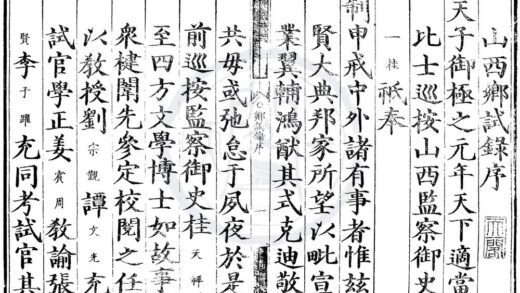 山西鄉試錄序
天子御極之元年天下適當
比士巡按山西監察御史
一桂祗奉
制申戒中外諸有事者惟茲
賢大典邦家所望以毗宣
業翼輔鴻猷其式克迪敬
鄉試錄序 一
共毋或弛怠于夙夜於是
前巡按監察御史桂天祥
至四方文學博士如故事
衆闈先參定校閱之任
以教授劉宗觀譚文光充
試官學正姜賓周教諭張
賢李子躍充同考試官其